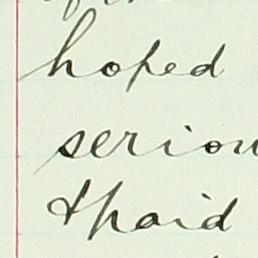 hoped
seriou
& paid